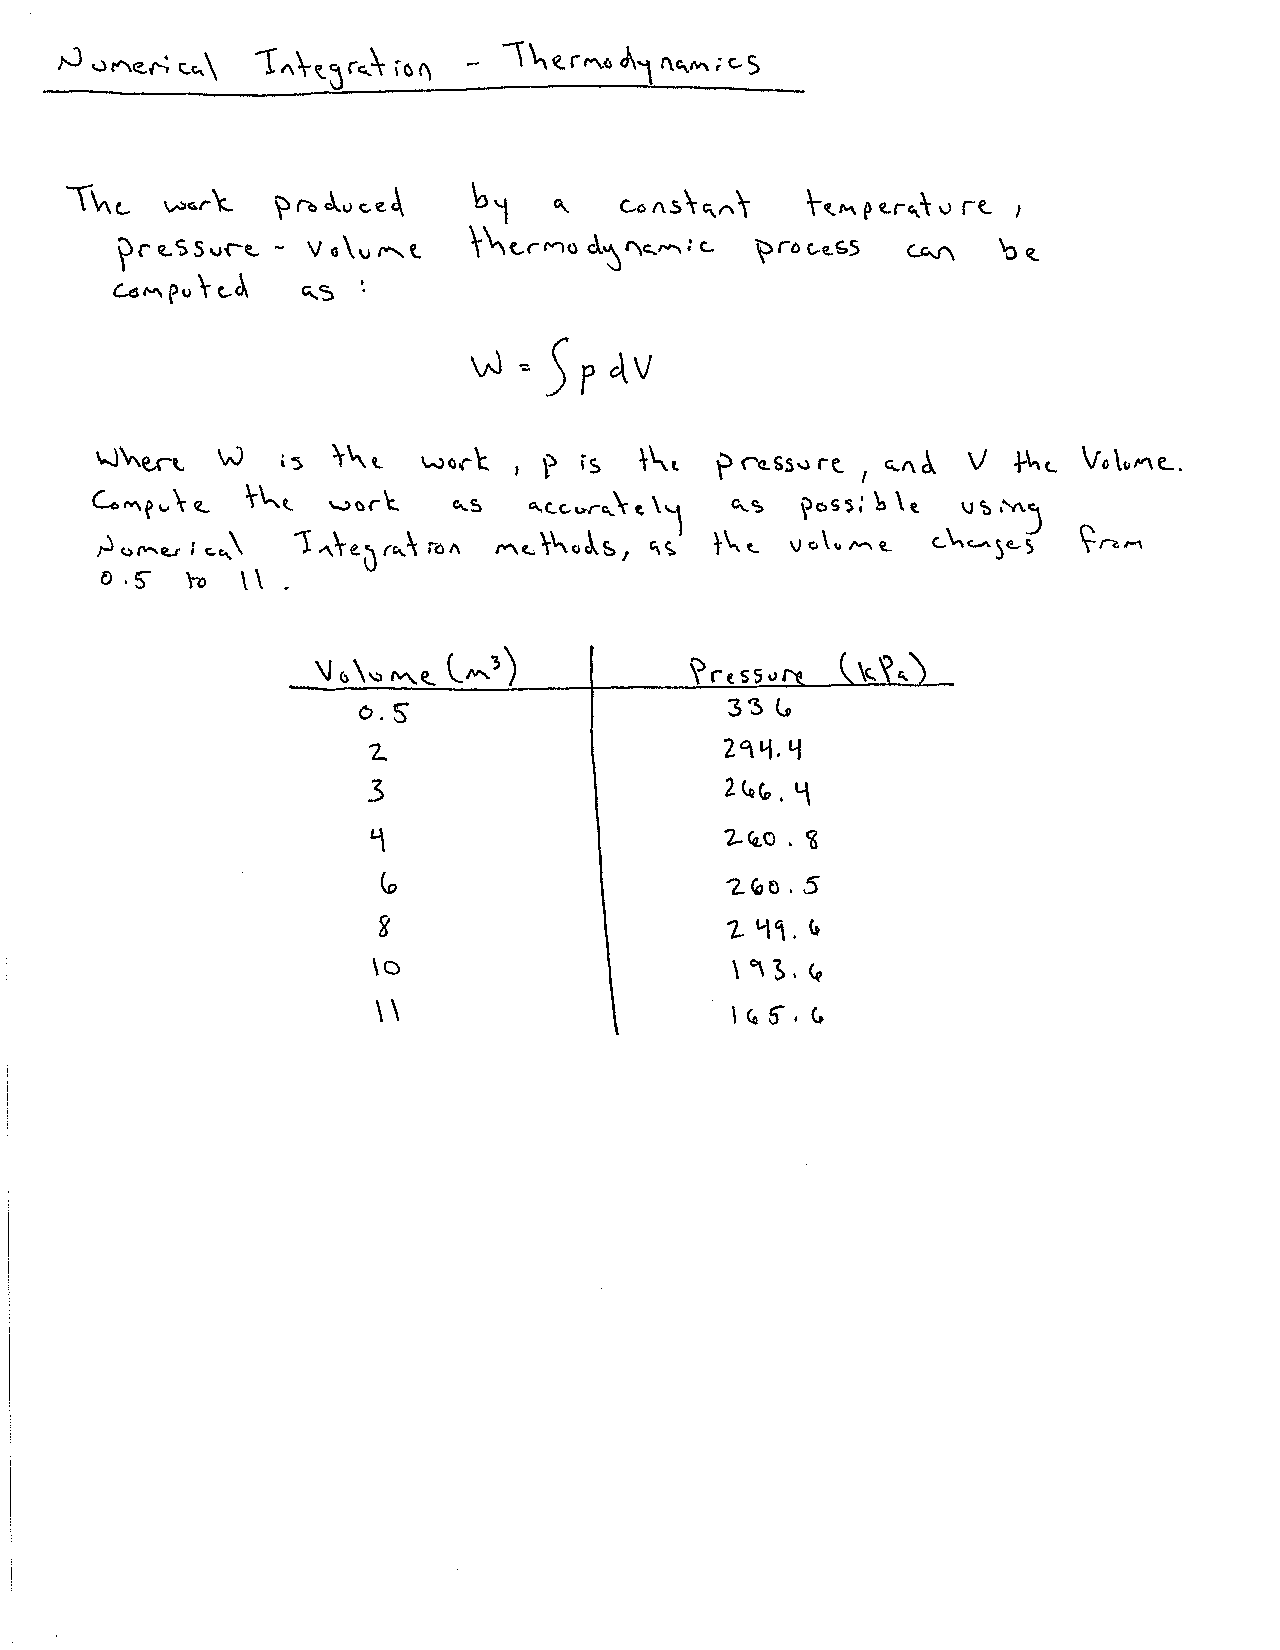 Numerical Integration - Thermodynamics
The work produced by a constant temperature,
pressure - volume thermodynamic process can be
computed as:
W = ∫ p dV
Where W is the work, p is the pressure, and V the Volume.
Compute the work as accurately as possible using
Numerical Integration methods, as the volume changes from
0.5 to 11.
Volume (m³) Pressure (kPa)
0.5 336
2 294.4
3 266.4
4 260.8
6 260.5
8 249.6
10 193.6
11 165.6